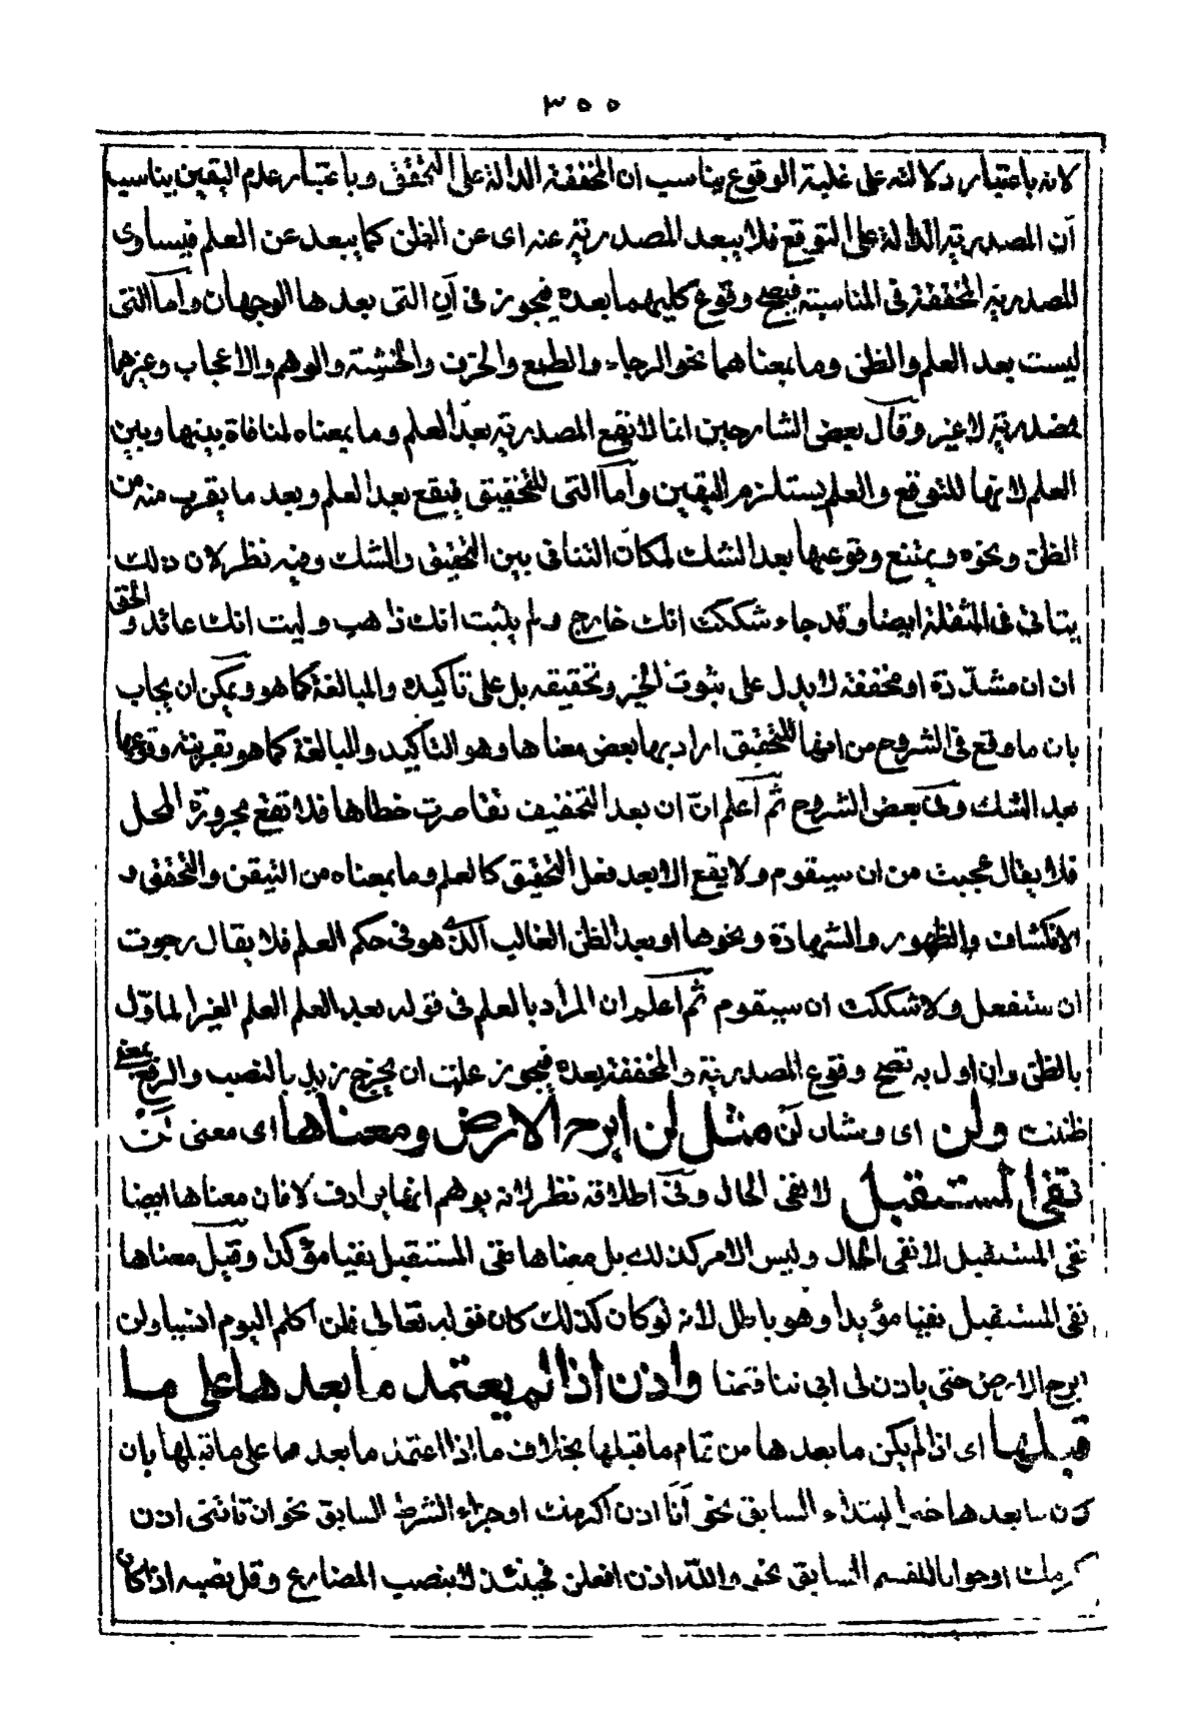 ٣٥٥
لانه باعتبار دلالته على غلبة الوقوع يناسب ان المخففة الدالة على التحقق وباعتبار عدم اليقين يناسب
أن المصدرية الدالة على التوقع فلا يبعد المصدرية عنه اى عن الظن كما يبعد عن العلم فيساوى
المصدرية المخففة فى المناسبة فيصح وقوع كليهما بعده فيجوز فى أن التى بعدها الوجهان وأما التى
ليست بعد العلم والظن وما بمعناهما نحو الرجاء والطمع والخوف والخشية والوهم والاعجاب وغيرها
فمصدرية لا غير وقال بعض الشارحين انما لا يقع المصدرية بعد العلم وما بمعناه لمنافاة بينها وبين
العلم لانها للتوقع والعلم يستلزم اليقين وأما التى للتحقيق فيقع بعد العلم وبعد ما يقرب منه من
الظن ونحوه ويمتنع وقوعها بعد الشك لمكان التنافى بين التحقيق والشك وفيه نظر لان ذلك
يتاتى فى المثقلة ايضا وقد جاء شككت انك خارج ولم يثبت انك ذاهب وليت انك عائد والحق
ان ان مشددة او مخففة لا يدل على ثبوت الخبر وتحقيقه بل على تأكيده والمبالغة كما هو ويمكن ان يجاب
بان ما وقع فى الشروح من انها للتحقيق اراد بها بعض معناها وهو التأكيد والمبالغة كما هو بقرينة وقوعها
بعد الشك وفى بعض الشروح ثم أعلم ان ان بعد التخفيف تقاصرت خطاها فلا تقع مجرورة المحل
فلا يقال عجبت من ان سيقوم ولا يقع الا بعد فعل التحقيق كالعلم وما بمعناه من التيقن والتحقق و
الانكشاف والظهور والشهادة ونحوها او بعد الظن الغالب الذى هو فى حكم العلم فلا يقال رجوت
ان ستفعل ولا شككت ان سيقوم ثم أعلم ان المراد بالعلم فى قوله بعد العلم العلم الغير الماوّل
بالظن وان اول به تصح وقوع المصدرية والمخففة بعده فيجوز علمت ان يخرج زيد بالنصب والرفع بمعنى
ظننت ولن اى ومثال لن مثل لن ابرح الارض ومعناها اى معنى لن
نفى المستقبل لا نفى الحال وفى اطلاقه نظر لانه يوهم انها يرادف لا فان معناها ايضا
نفى المستقبل لا نفى الحال وليس الامر كذلك بل معناها نفى المستقبل نفيا مؤكدا وقيل معناها
نفى المستقبل نفيا مؤبدا وهو باطل لانه لو كان كذلك كان قوله تعالى فلن اكلم اليوم انسيا ولن
ابرح الارض حتى ياذن لى ابى تناقضا واذن اذا لم يعتمد ما بعدها على ما
قبلها اى اذا لم يكن ما بعدها من تمام ما قبلها بخلاف ما اذا اعتمد ما بعدها على ما قبلها بان
كان ما بعدها خبر المبتداء السابق نحو أنا اذن اكرمك او جزاء الشرط السابق نحو ان تأتنى اذن
اكرمك او جوابا للقسم السابق نحو والله اذن افعلن فحينئذ لا ينصب المضارع وقل نصبه اذا كان